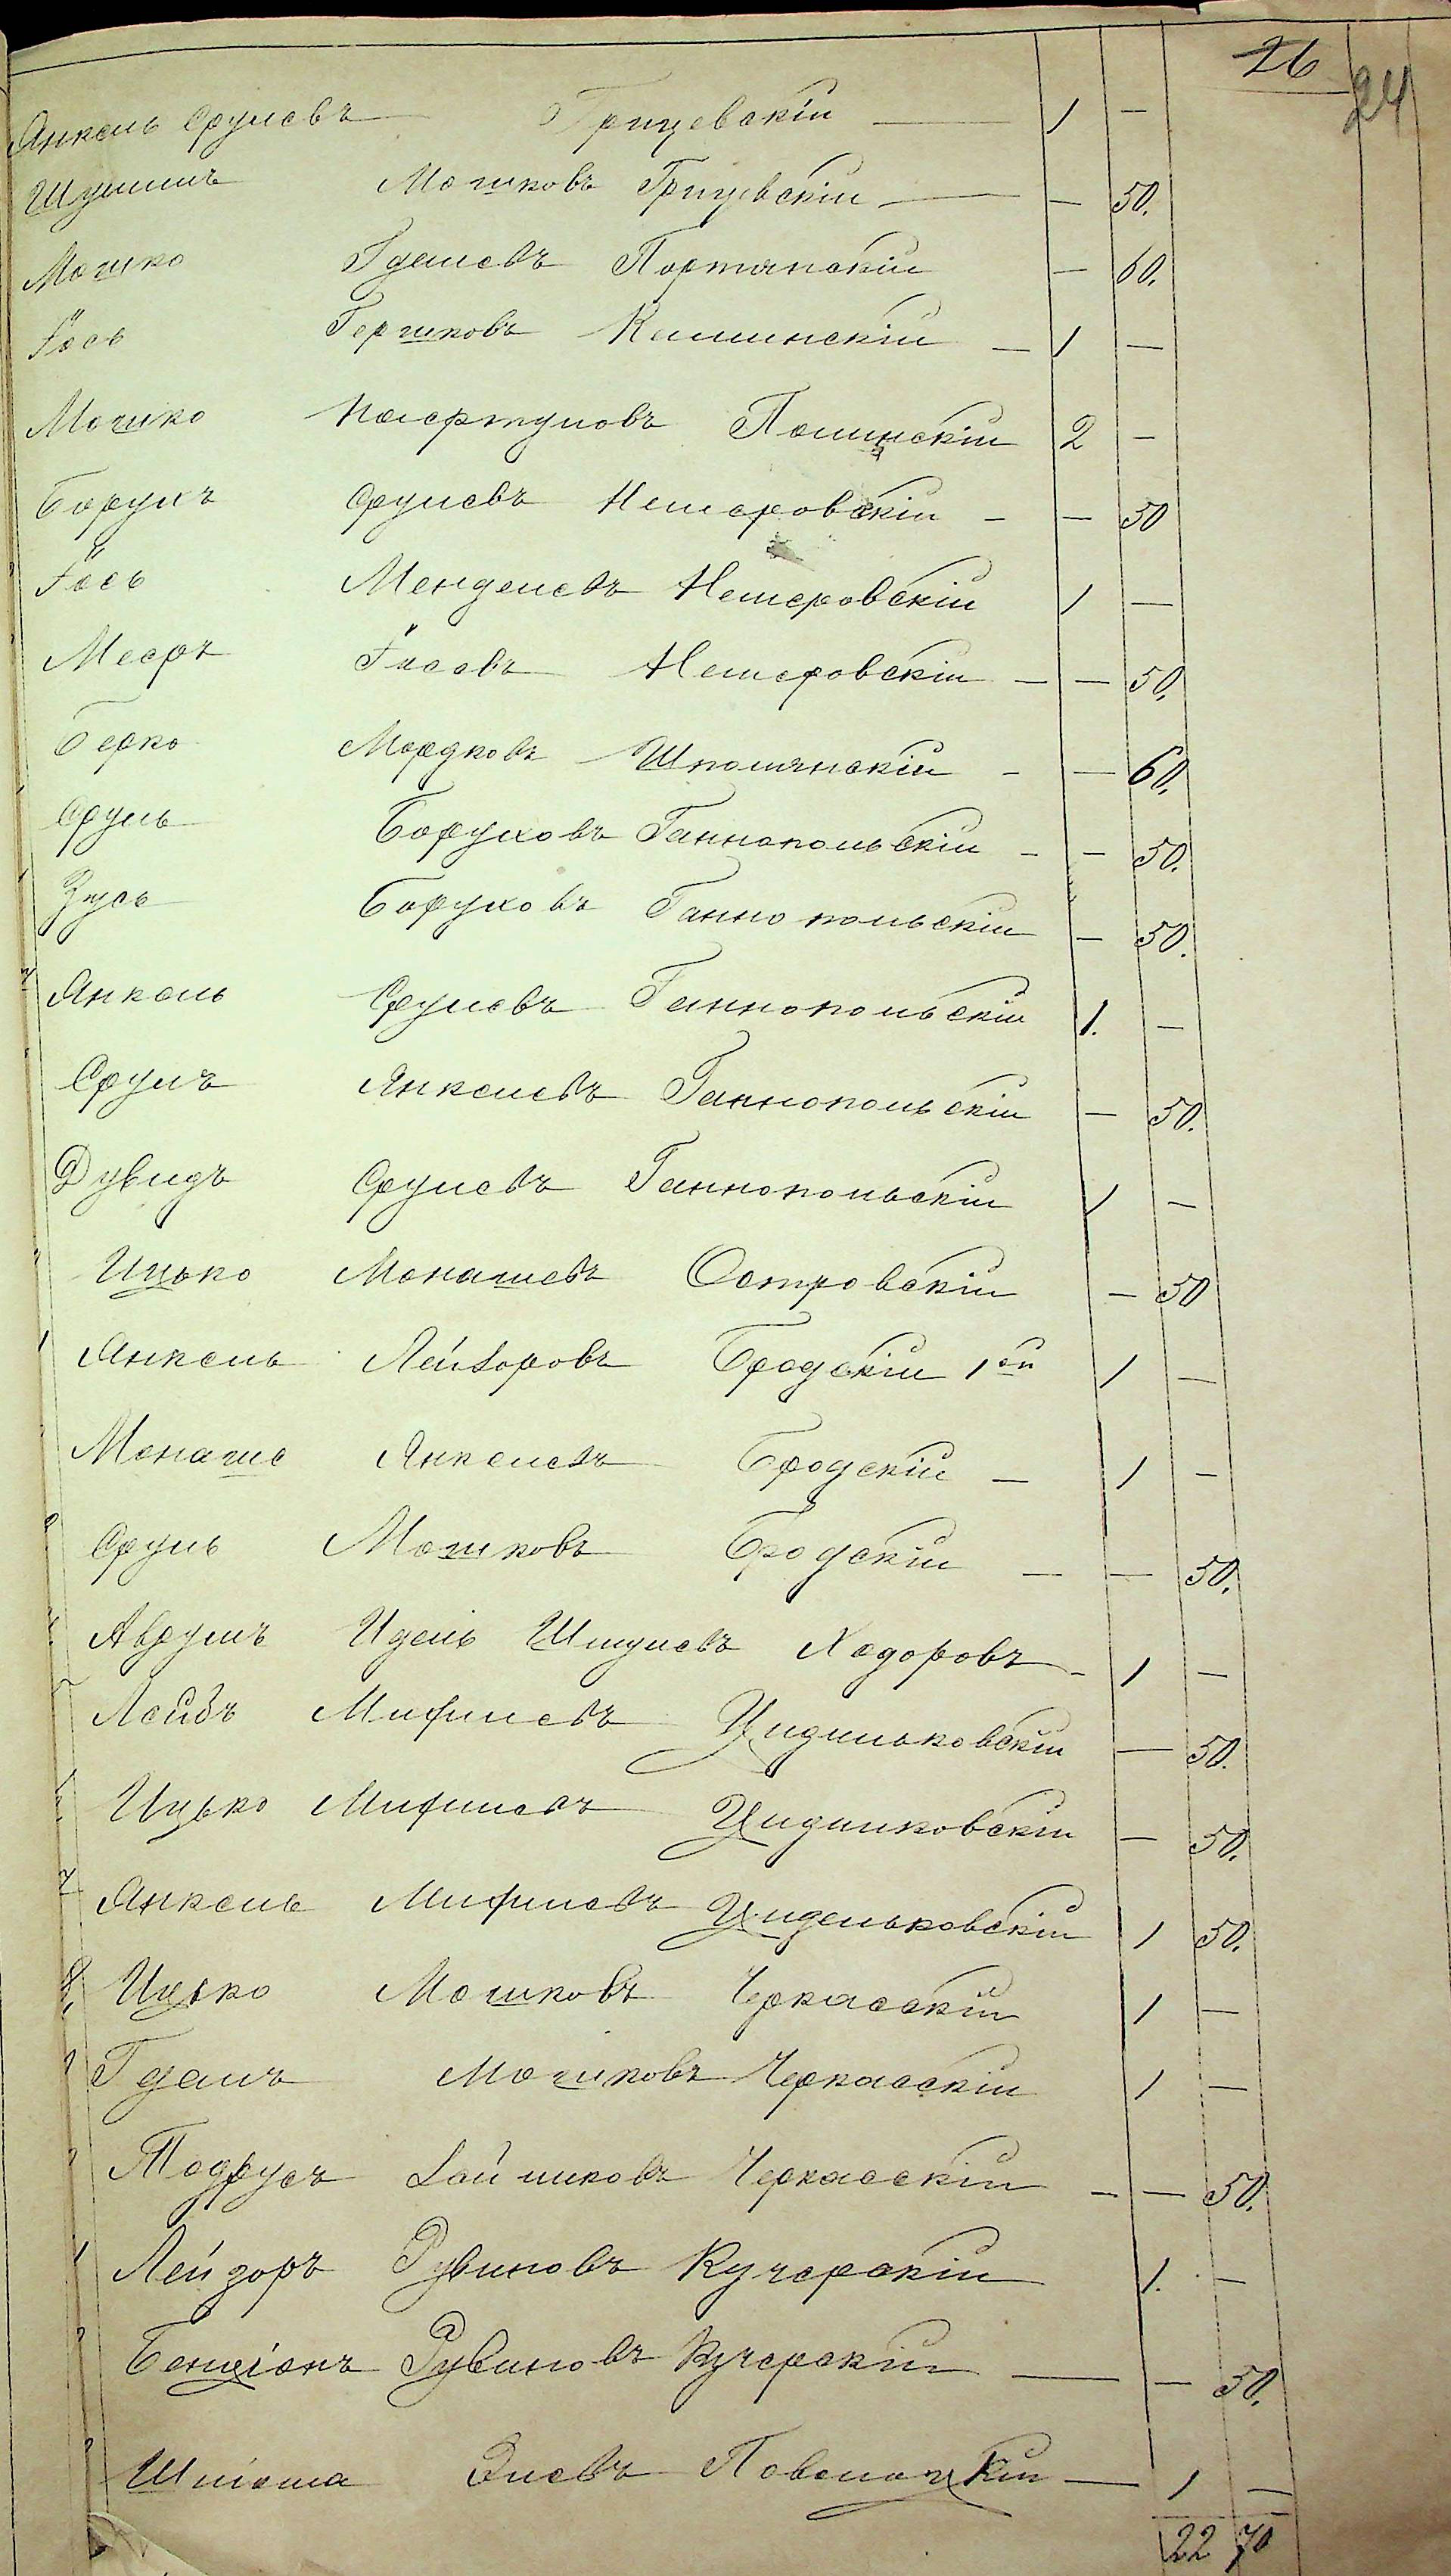 26
24
Янкель Срулевъ Грицевскій — 1 —
Шулимъ Мошковъ Грицевскій — — 50.
Мошко Гдалевъ Портянскій — 60.
Іось Гершковъ — 1 —
Мошко Полинскій 2 —
Борухъ Срулевъ Немеровскій — — 50
Іось Менделевъ Немеровскій 1 —
Мееръ Іосевъ Немеровскій — — 50.
Берко Мордковъ Шполянскій — — 60.
Сруль Боруховъ Ганнопольскій — — 50.
Зусь Боруховъ Ганнопольскій — 50.
Янкель Срулевъ Ганнопольскій 1. —
Срулъ Янкелевъ Ганнопольскій — 50.
Дувидъ Срулевъ Ганнопольскій 1 —
Ицько Монашевъ Островскій — 50
Янкель Лейзоровъ Бродскій 1ой 1 —
Монаше Янкелевъ Бродскій — 1 —
Сруль Мошковъ Бродскій — — 50.
Аврумъ Идель Шмулевъ Ходоровъ — 1 —
Лейбъ Цидильковскій — 50.
Ицько Цидилковскій — 50.
Янкель Цидельковскій 1 50.
Ицько Мошковъ Черкасскій 1 —
Гдалъ Мошковъ Черкасскій 1 —
Тодрусъ Черкасскій — — 50.
Лейзоръ Рувиновъ Кучерскій 1. —
Бенціонъ Рувиновъ Кучерскій — — 50.
Шлiома Элевъ Поволоцкій — 1 —
22 70